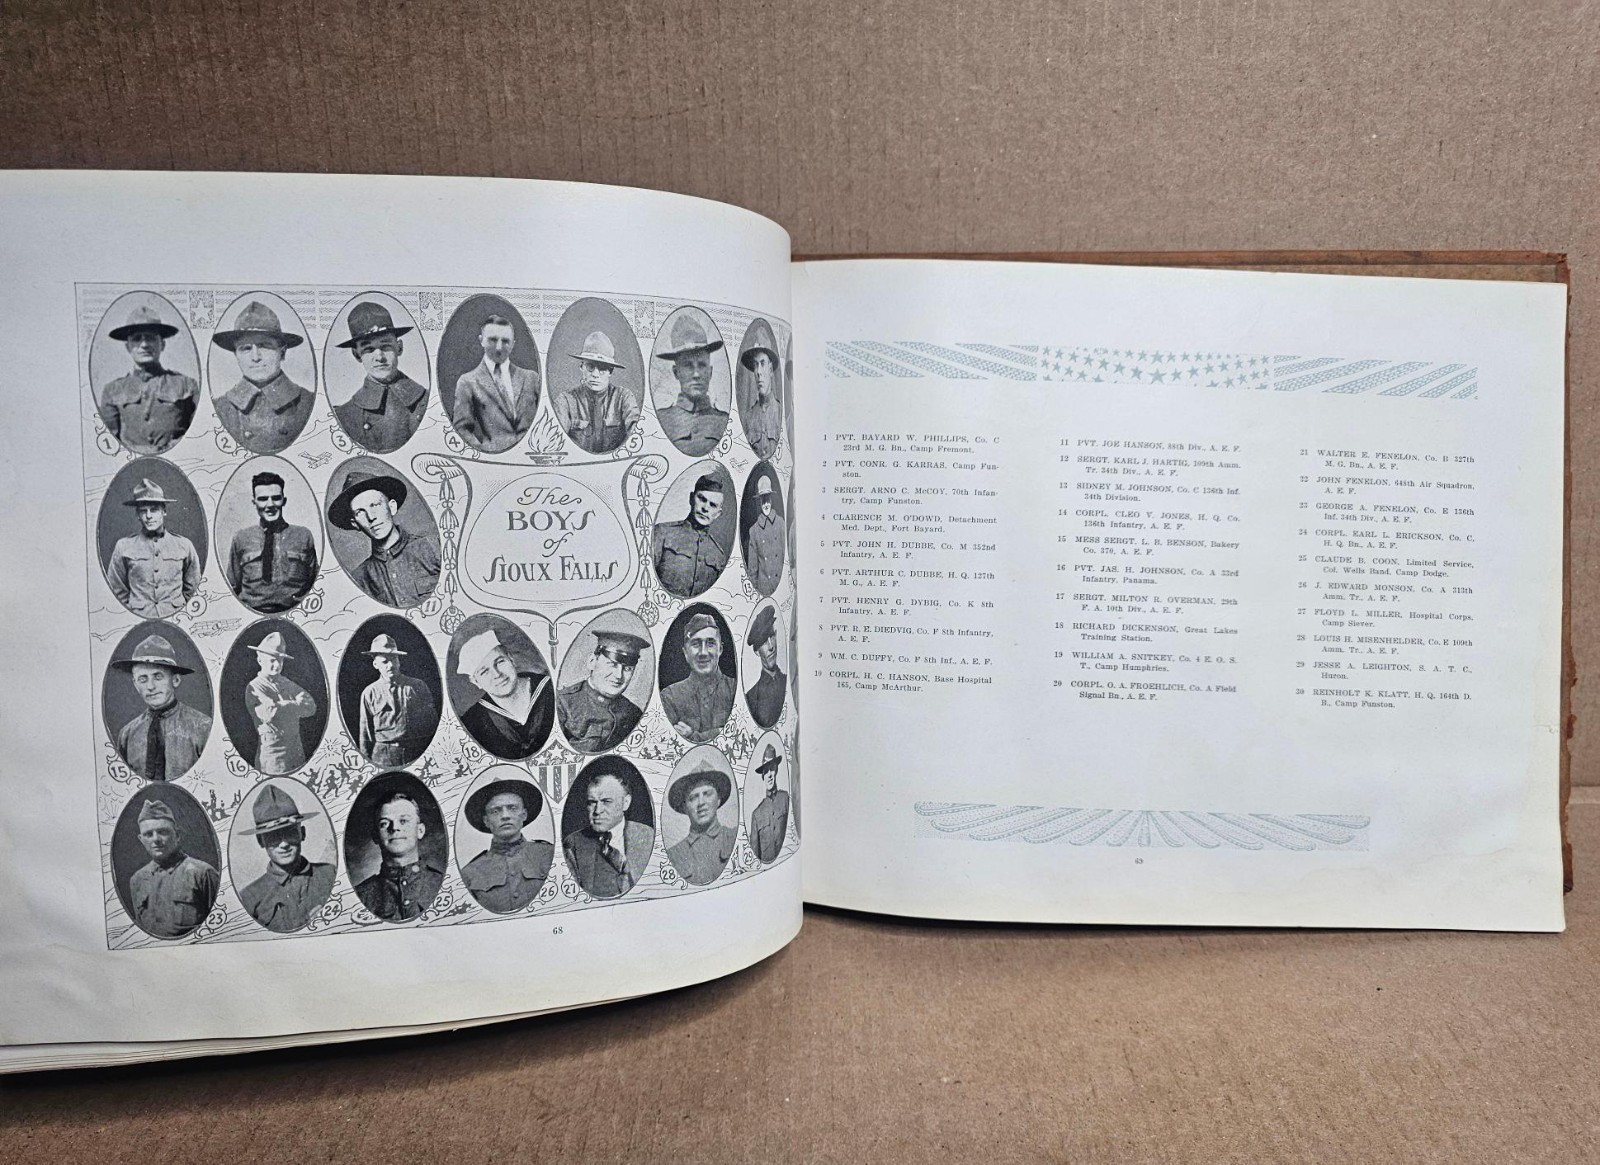 1
2
3
4
5
6
The
BOYS
of
SIOUX FALLS
9
10
11
12
13
15
16
17
18
19
20
23
24
25
26
27
28
29
68
1 PVT. BAYARD W. PHILLIPS, Co. C
23rd M. G. Bn., Camp Fremont.
2 PVT. CONR. G. KARRAS, Camp Fun-
ston.
3 SERGT. ARNO C. McCOY, 70th Infan-
try, Camp Funston.
4 CLARENCE M. O'DOWD, Detachment
Med. Dept., Fort Bayard.
5 PVT. JOHN H. DUBBE, Co. M 352nd
Infantry, A. E. F.
6 PVT. ARTHUR C. DUBBE, H. Q. 127th
M. G., A. E. F.
7 PVT. HENRY G. DYBIG, Co. K 8th
Infantry, A. E. F.
8 PVT. R. E. DIEDVIG, Co. F 8th Infantry,
A. E. F.
9 WM. C. DUFFY, Co. F 8th Inf., A. E. F.
10 CORPL. H. C. HANSON, Base Hospital
165, Camp McArthur.
11 PVT. JOE HANSON, 88th Div., A. E. F.
12 SERGT. KARL J. HARTIG, 109th Amm.
Tr. 34th Div., A. E. F.
13 SIDNEY M. JOHNSON, Co. C 136th Inf.
34th Division.
14 CORPL. CLEO V. JONES, H. Q. Co.
136th Infantry, A. E. F.
15 MESS SERGT. L. B. BENSON, Bakery
Co. 370, A. E. F.
16 PVT. JAS. H. JOHNSON, Co. A 33rd
Infantry, Panama.
17 SERGT. MILTON R. OVERMAN, 29th
F. A. 10th Div., A. E. F.
18 RICHARD DICKENSON, Great Lakes
Training Station.
19 WILLIAM A. SNITKEY, Co. 4 E. O. S.
T., Camp Humphries.
20 CORPL. O. A. FROEHLICH, Co. A Field
Signal Bn., A. E. F.
21 WALTER E. FENELON, Co. B 327th
M. G. Bn., A. E. F.
22 JOHN FENELON, 648th Air Squadron,
A. E. F.
23 GEORGE A. FENELON, Co. E 136th
Inf. 34th Div., A. E. F.
24 CORPL. EARL L. ERICKSON, Co. C,
H. Q. Bn., A. E. F.
25 CLAUDE B. COON, Limited Service,
Col. Wells Band, Camp Dodge.
26 J. EDWARD MONSON, Co. A 313th
Amm. Tr., A. E. F.
27 FLOYD L. MILLER, Hospital Corps,
Camp Siever.
28 LOUIS H. MISENHELDER, Co. E 109th
Amm. Tr., A. E. F.
29 JESSE A. LEIGHTON, S. A. T. C.,
Huron.
30 REINHOLT K. KLATT, H. Q. 164th D.
B., Camp Funston.
69